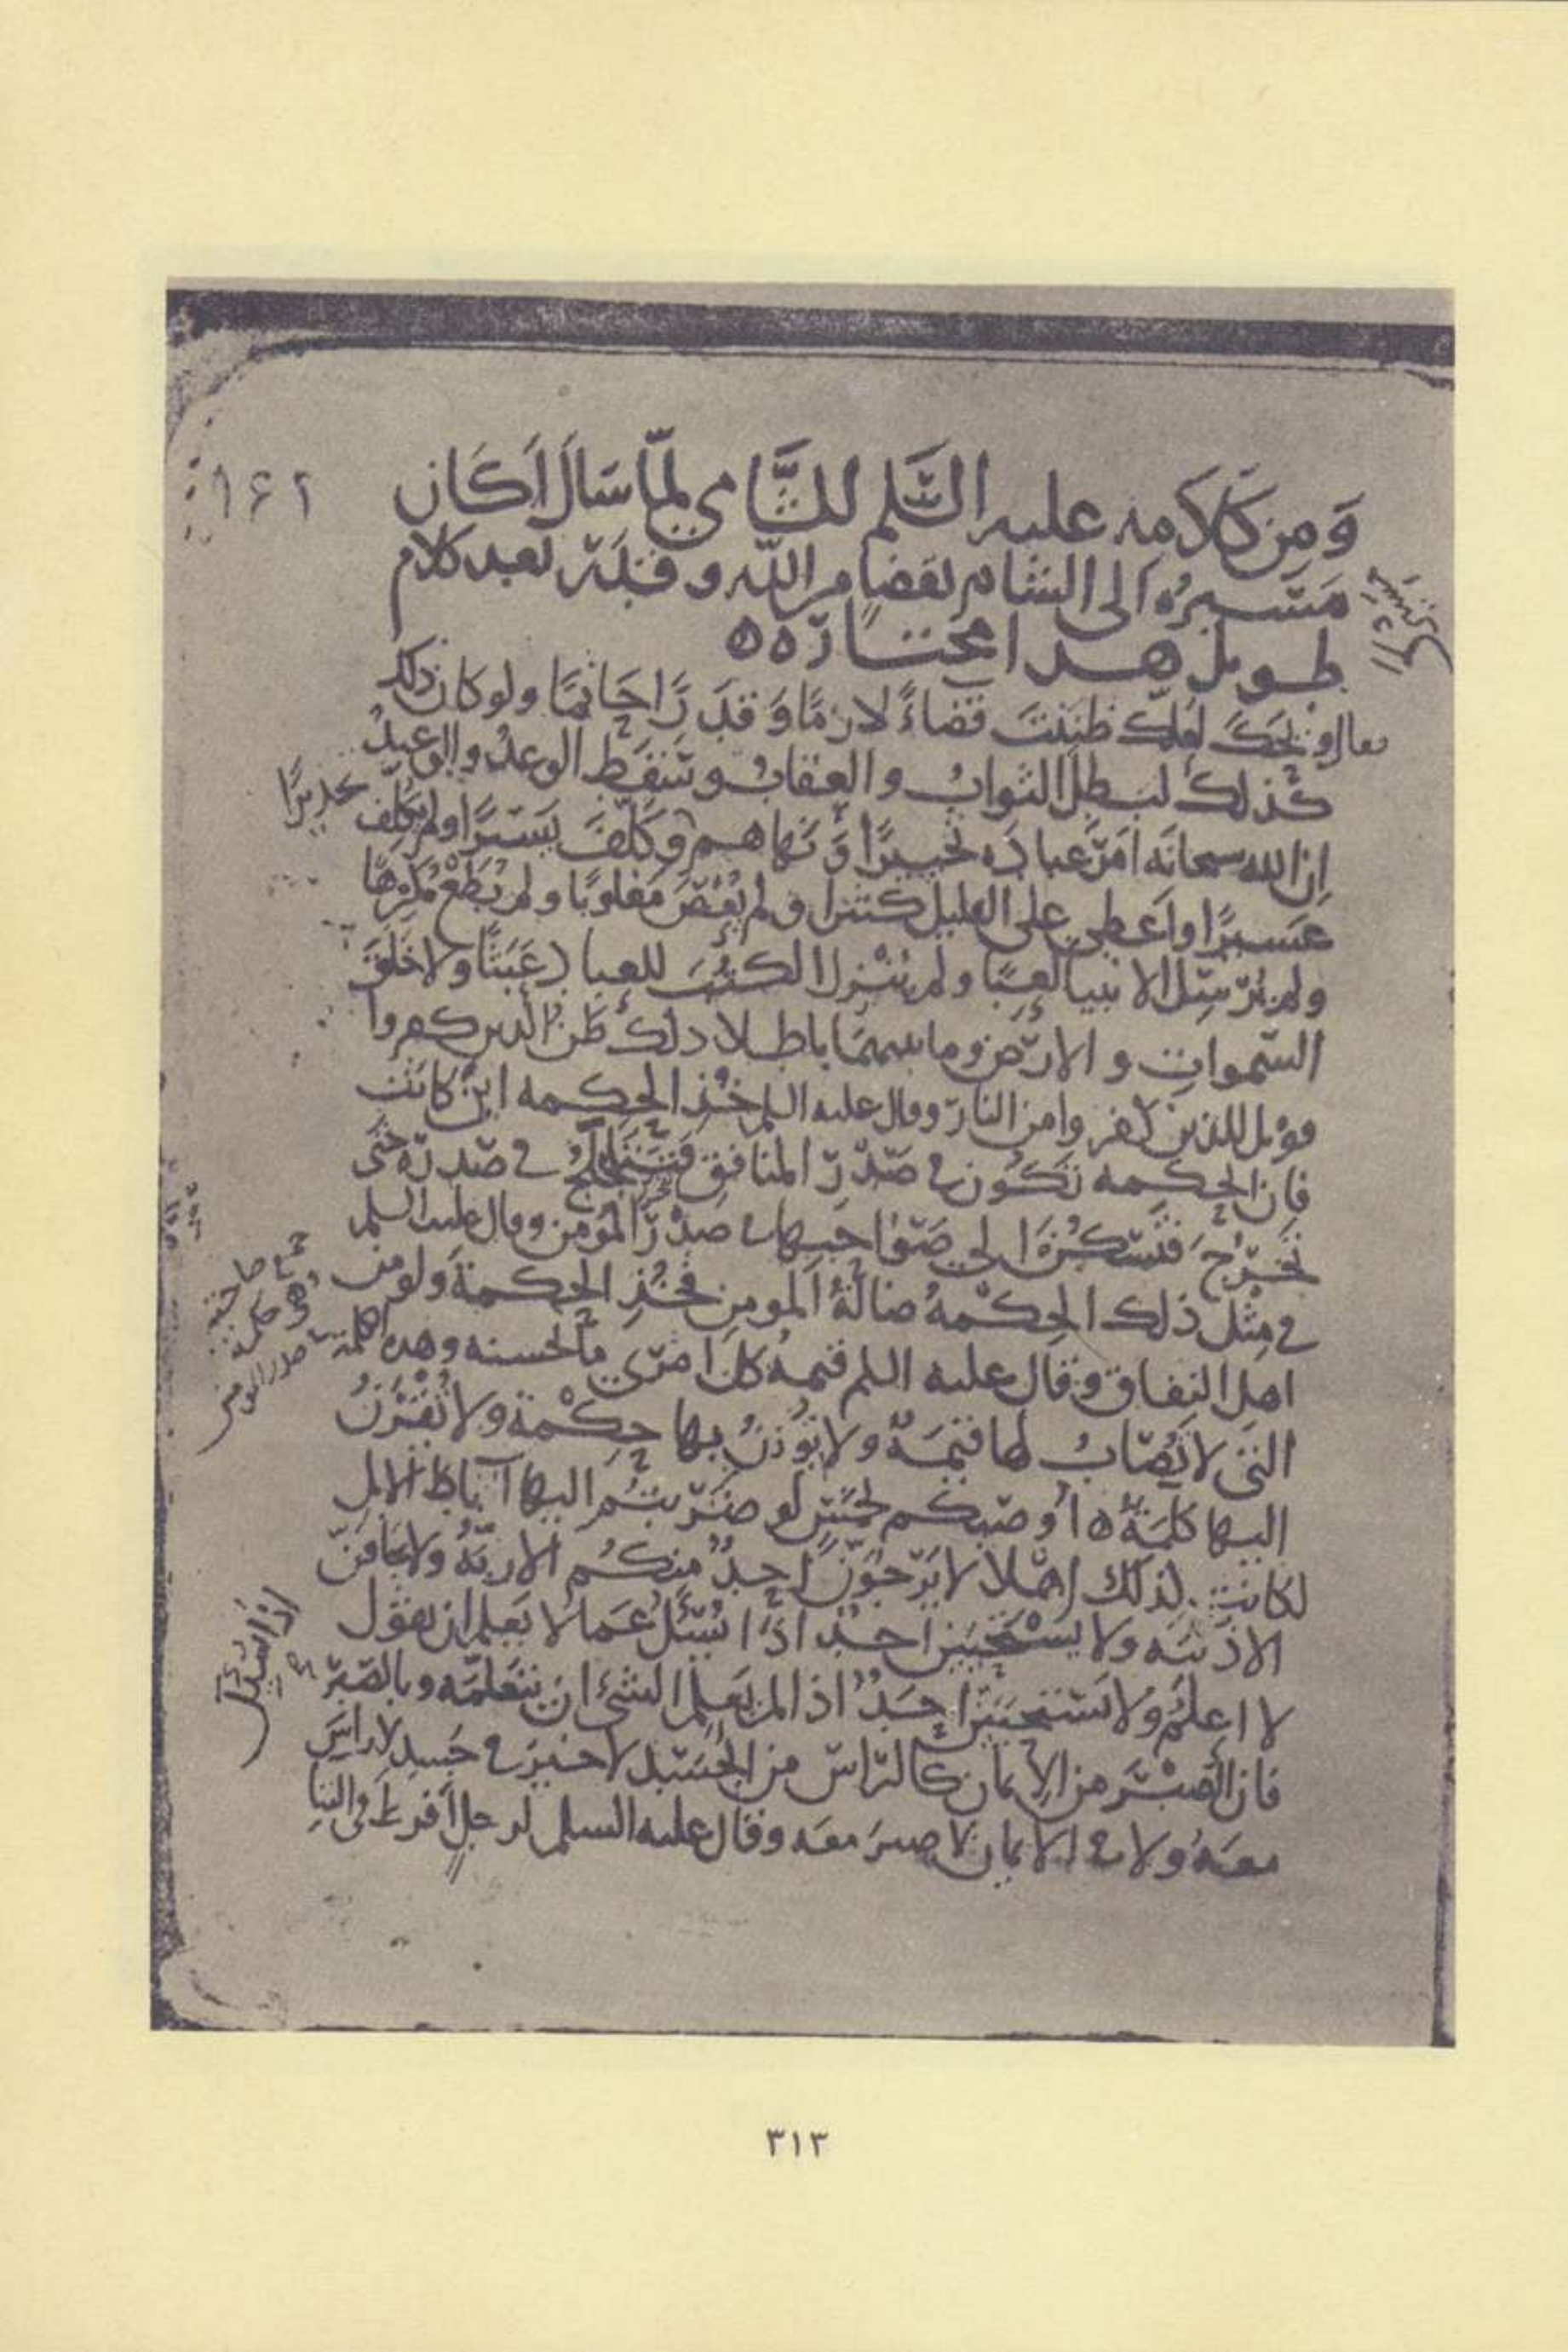 ١٦٢
وَمِن كَلَامِه عليه السَّلم للشَّامي لمّا سَالَ اَكَانَ
مَسِيرُه الى الشام بقضا من الله وقدَرٍ بعد كلام
طويل هذا مختاره ه
فقال ويحَكَ لعلّك ظننتَ قضاءً لازمًا وَقدَرًا حَاتمًا ولو كان ذلك
كذلك لبطل الثوابُ والعقابُ وسَقَط الوعدُ والوعيدُ
إن الله سبحانَه امَرَ عبادَه تخييرًا وَنهاهم تحذيرًا وَكلّفَ يَسيرًا ولم يكلّف
عَسيرًا واَعطى على القليل كثيرا ولم يُعْصَ مغلوبًا ولم يُطَعْ مُكرِهًا
ولم يُرْسِل الانبيا لعبًا ولم يُنْزل الكتُبَ للعباد عَبَثًا ولا خَلَقَ
السّمواتِ والارْضَ وما بينهمَا باطلا ذلك ظَنُّ الذين كفروا
فويل للذين كفروا من النار وقال عليه السلم خُذِ الحكمه اين كانت
فان الحكمه تكون في صَدْرِ المنافق فتتلجلج في صَدره حتى
تخرُجَ فتسكُنَ الى صَوَاحبها في صَدْرِ المؤمن وقال عليه السلم
في مثل ذلك الحِكْمةُ ضالّةُ المومِن فخُذِ الحكمةَ ولو من
اهل النفاق وقال عليه السلم قيمةُ كلّ امرئ ما يُحسنه وهذه الكلمة
التي لا تُصَابُ لها قيمَةٌ ولا تُوزَنُ بها حِكْمة ولا تُقْرَنُ
اليها كلمَةٌ ه اُوصيكم بخمسٍ لو ضَرَبتُم اليها آباط الابل
لكانت لذلك اهْلا لا يَرْجُوَنَّ احدٌ منكُم الا ربَّهُ ولا يخافَنّ
الا ذنبَه ولا يَسْتحيينّ احدٌ اذا سُئِلَ عَما لا يَعلم ان يقول
لا اعلمُ ولا يَسْتحيينّ احَدٌ اذا لم يَعلم الشئ ان يتعلّمَه وبالصّبر
فان الصَّبْرَ من الايمان كالرّاس من الجَسَد لا خيرَ في جَسدٍ لا راسَ
معَهُ ولا في الايمان لا صبرَ معَه وقال عليه السلم لرجلٍ اَفرط في الثنا
اذا سُئِل
٣١٣